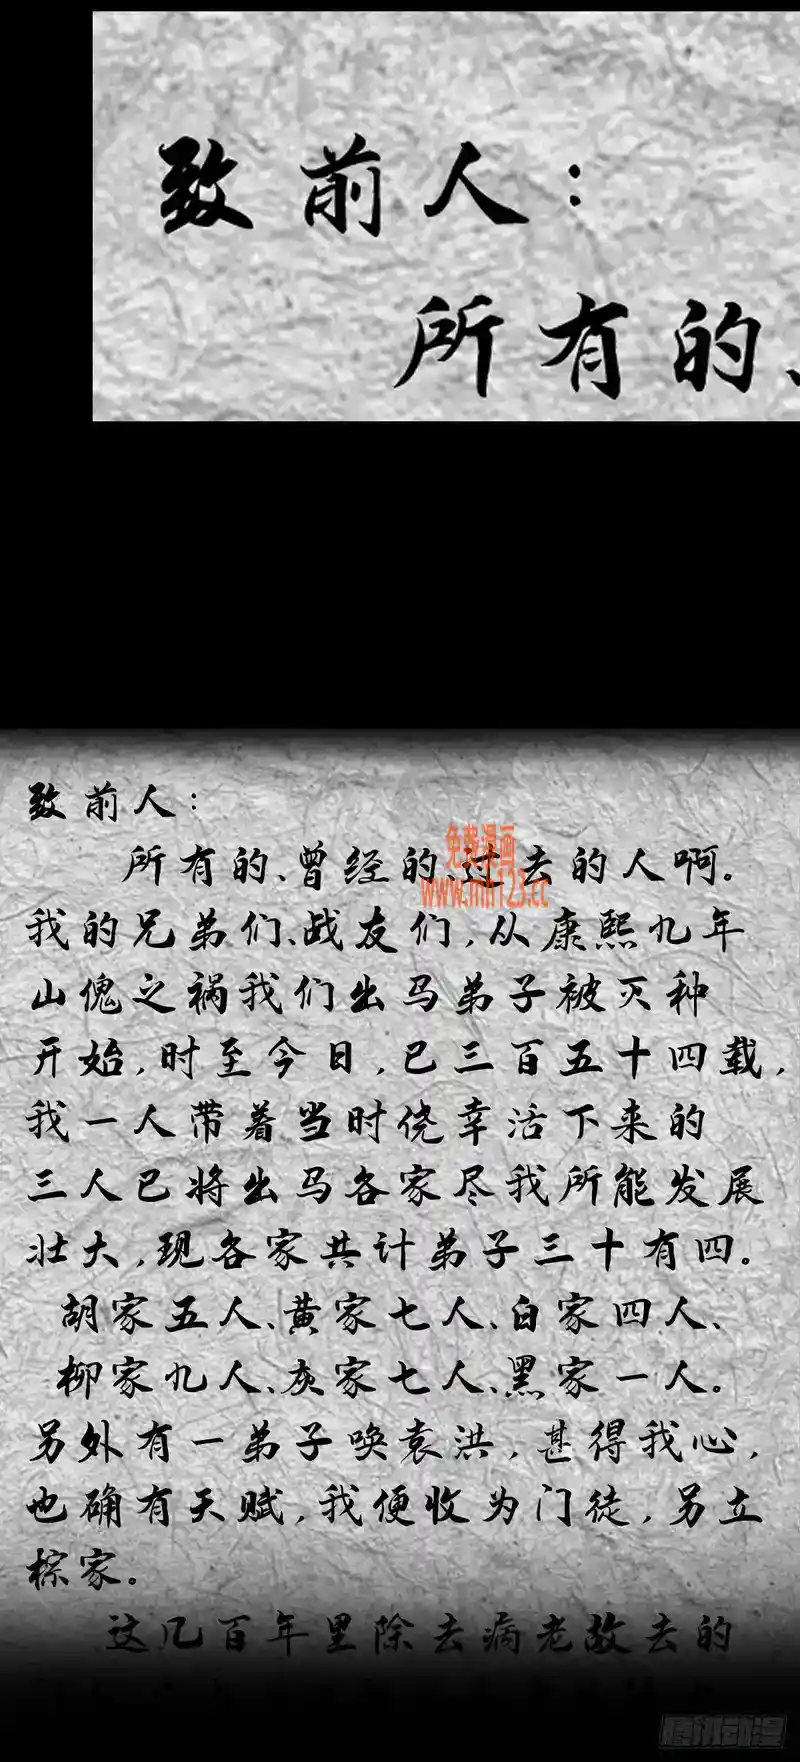 致前人：
所有的、
致前人：
所有的、曾经的、过去的人啊。
我的兄弟们、战友们，从康熙九年
山傀之祸我们出马弟子被灭种
开始，时至今日，已三百五十四载，
我一人带着当时侥幸活下来的
三人已将出马各家尽我所能发展
壮大，现各家共计弟子三十有四。
胡家五人、黄家七人、白家四人、
柳家九人、灰家七人、黑家一人。
另外有一弟子唤袁洪，甚得我心，
也确有天赋，我便收为门徒，另立
棕家。
这几百年里除去病老故去的
免费漫画
腾讯动漫